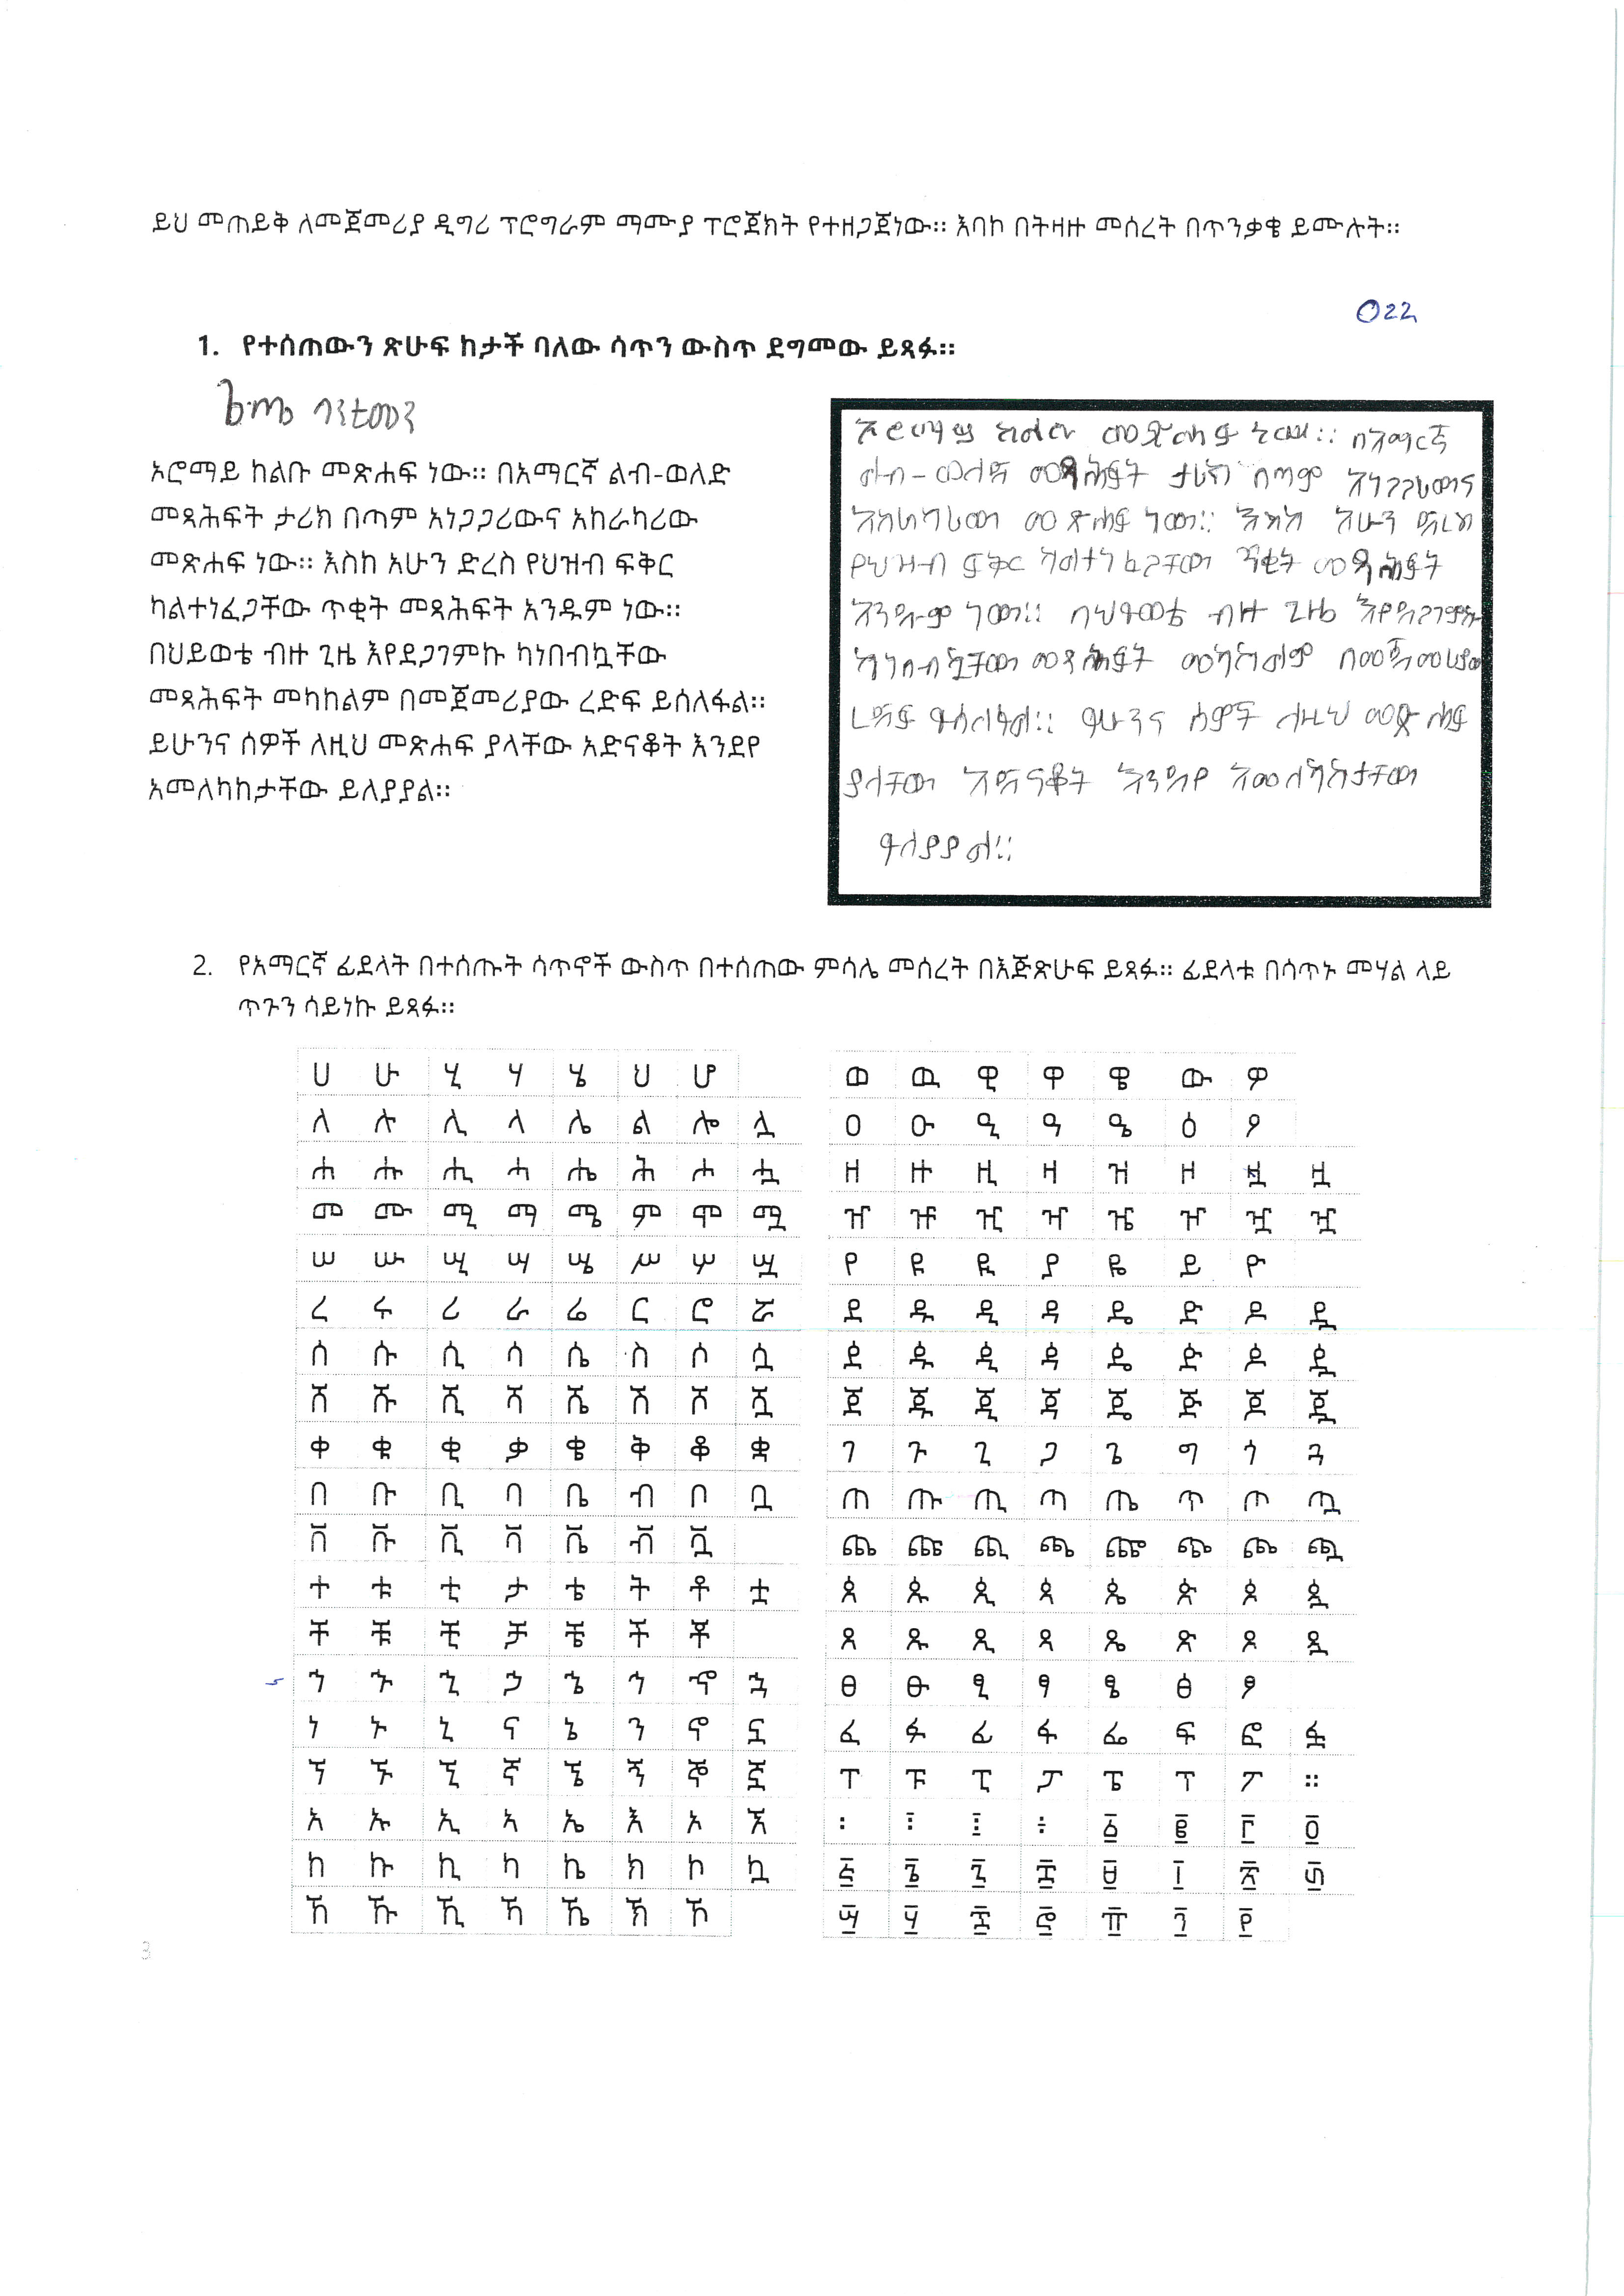 ይህ መጠይቅ ለመጀመሪያ ዲግሪ ፕሮግራም ማሙያ ፕሮጀክት የተዘጋጀነው። እባኮ በትዛዙ መሰረት በጥንቃቄ ይሙሉት።
022
1. የተሰጠውን ጽሁፍ ከታች ባለው ሳጥን ውስጥ ደግመው ይጻፉ።
ኦሮማይ ከልቡ መጽሐፍ ነው። በአማርኛ ልብ-ወለድ
መጻሕፍት ታሪክ በጣም አነጋጋሪውና አከራካሪው
መጽሐፍ ነው። እስከ አሁን ድረስ የህዝብ ፍቅር
ካልተነፈጋቸው ጥቂት መጻሕፍት አንዱም ነው።
በህይወቴ ብዙ ጊዜ እየደጋገምኩ ካነበብኳቸው
መጻሕፍት መካከልም በመጀመሪያው ረድፍ ይሰለፋል።
ይሁንና ሰዎች ለዚህ መጽሐፍ ያላቸው አድናቆት እንደየ
አመለካከታቸው ይለያያል።
ኦሮማይ ከልቡ መጽሐፍ ነው። በአማርኛ
ልብ-ወለድ መጻሕፍት ታሪክ በጣም አነጋጋሪውና
አከራካሪው መጽሐፍ ነው። እስከ አሁን ድረስ
የህዝብ ፍቅር ካልተነፈጋቸው ጥቂት መጻሕፍት
አንዱም ነው። በህይወቴ ብዙ ጊዜ እየደጋገምኩ
ካነበብኳቸው መጻሕፍት መካከልም በመጀመሪያው
ረድፍ ይሰለፋል። ይሁንና ሰዎች ለዚህ መጽሐፍ
ያላቸው አድናቆት እንደየ አመለካከታቸው
ይለያያል።
2. የአማርኛ ፊደላት በተሰጡት ሳጥኖች ውስጥ በተሰጠው ምሳሌ መሰረት በእጅጽሁፍ ይጻፉ። ፊደላቱ በሳጥኑ መሃል ላይ
ጥጉን ሳይነኩ ይጻፉ።
ሀ ሁ ሂ ሃ ሄ ህ ሆ
ለ ሉ ሊ ላ ሌ ል ሎ ሏ
ሐ ሑ ሒ ሓ ሔ ሕ ሖ ሗ
መ ሙ ሚ ማ ሜ ም ሞ ሟ
ሠ ሡ ሢ ሣ ሤ ሥ ሦ ሧ
ረ ሩ ሪ ራ ሬ ር ሮ ሯ
ሰ ሱ ሲ ሳ ሴ ስ ሶ ሷ
ሸ ሹ ሺ ሻ ሼ ሽ ሾ ሿ
ቀ ቁ ቂ ቃ ቄ ቅ ቆ ቋ
በ ቡ ቢ ባ ቤ ብ ቦ ቧ
ቨ ቩ ቪ ቫ ቬ ቭ ቯ
ተ ቱ ቲ ታ ቴ ት ቶ ቷ
ቸ ቹ ቺ ቻ ቼ ች ቾ
ኀ ኁ ኂ ኃ ኄ ኅ ኆ ኋ
ነ ኑ ኒ ና ኔ ን ኖ ኗ
ኘ ኙ ኚ ኛ ኜ ኝ ኞ ኟ
አ ኡ ኢ ኣ ኤ እ ኦ ኧ
ከ ኩ ኪ ካ ኬ ክ ኮ ኳ
ኸ ኹ ኺ ኻ ኼ ኽ ኾ
ወ ዉ ዊ ዋ ዌ ው ዎ
ዐ ዑ ዒ ዓ ዔ ዕ ዖ
ዘ ዙ ዚ ዛ ዝ ዞ ዟ ዟ
ዠ ዡ ዢ ዣ ዤ ዥ ዧ ዧ
የ ዩ ዪ ያ ዬ ይ ዮ
ደ ዱ ዲ ዳ ዴ ድ ዶ ዷ
ዸ ዹ ዺ ዻ ዼ ዽ ዾ ዿ
ጀ ጁ ጂ ጃ ጄ ጅ ጆ ጇ
ገ ጉ ጊ ጋ ጌ ግ ጎ ጓ
ጠ ጡ ጢ ጣ ጤ ጥ ጦ ጧ
ጨ ጩ ጪ ጫ ጬ ጭ ጮ ጯ
ጰ ጱ ጲ ጳ ጴ ጵ ጶ ጷ
ጸ ጹ ጺ ጻ ጼ ጽ ጾ ጿ
ፀ ፁ ፂ ፃ ፄ ፅ ፆ
ፈ ፉ ፊ ፋ ፌ ፍ ፎ ፏ
ፐ ፑ ፒ ፓ ፔ ፕ ፖ ።
፡ ፤ ፩ ፪ ፫ ፬
፭ ፮ ፯ ፰ ፱ ፲ ፳ ፴
፵ ፶ ፷ ፸ ፹ ፺ ፻
3